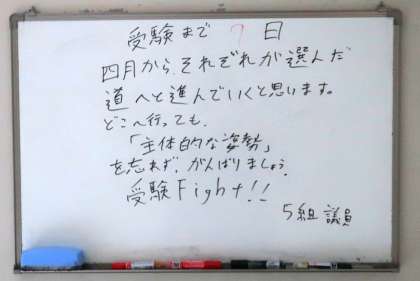 受験まで 7 日
四月から、それぞれが選んだ
道へと進んでいくと思います。
どこへ行っても、
「主体的な姿勢」
を忘れず、がんばりましょう。
受験Fight!!
5組 議員